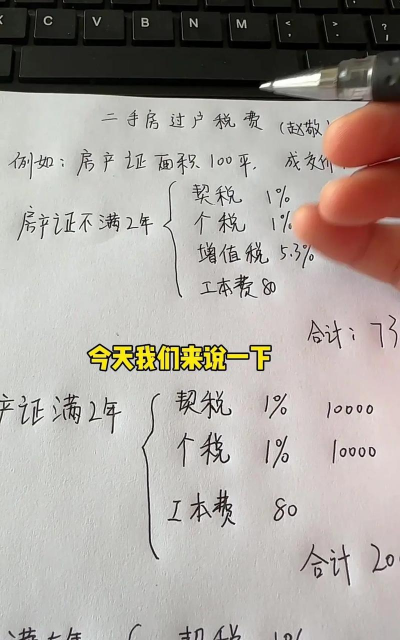 二手房过户税费 (赵敬
例如: 房产证面积100平, 成交价
房产证不满2年
契税 1%
个税 1%
增值税 5.3%
工本费 80
合计: 73
今天我们来说一下
产证满2年
契税 1% 10000
个税 1% 10000
工本费 80
合计 20
契税 1%